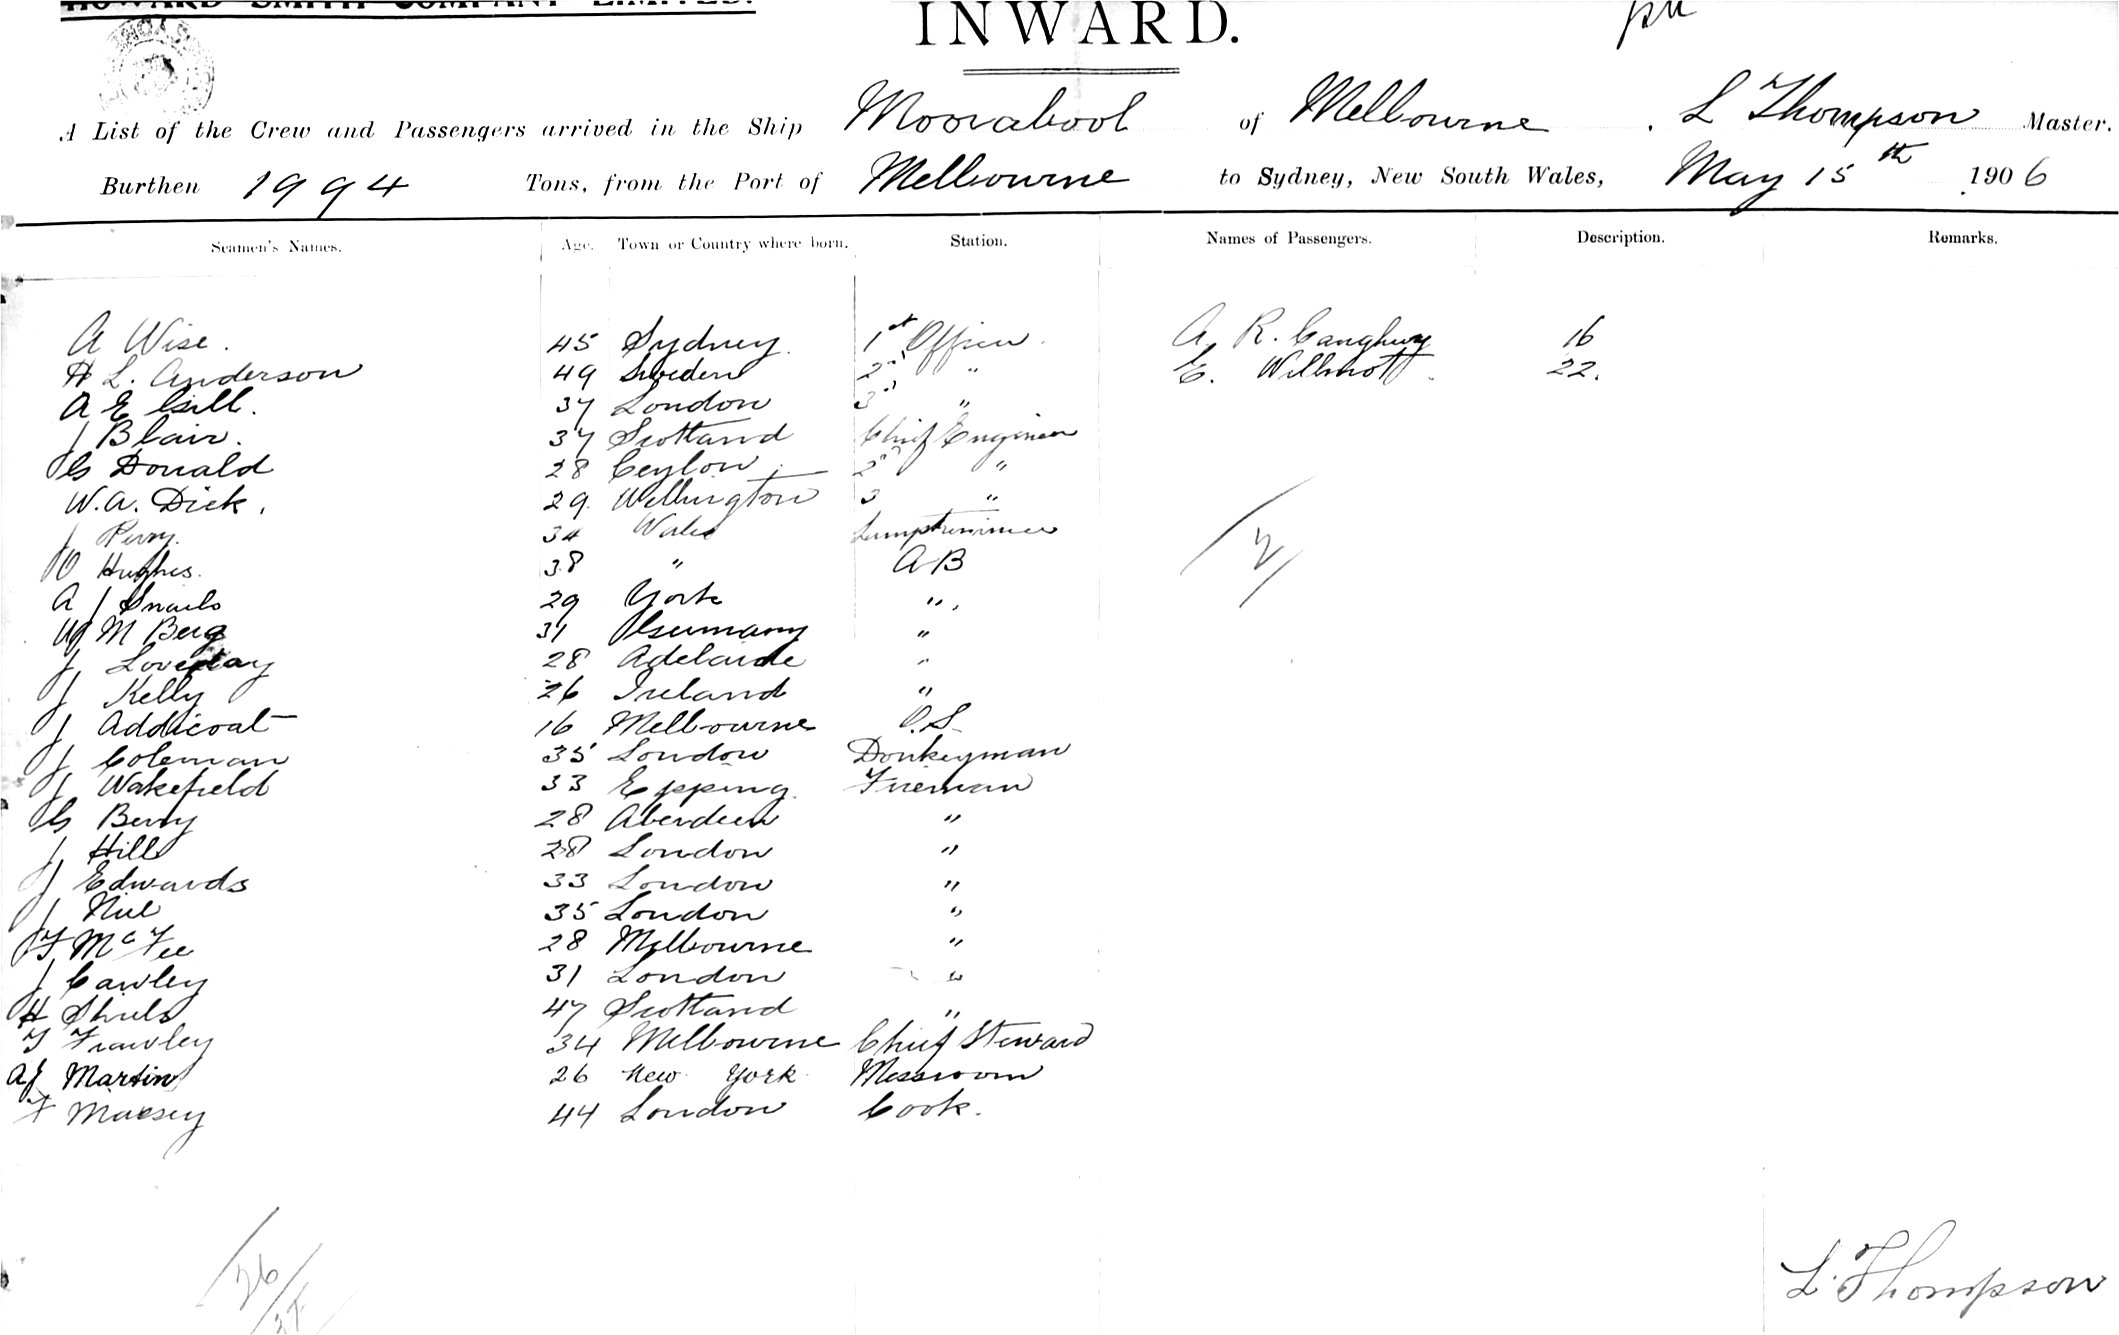 HOWARD SMITH COMPANY LIMITED.
INWARD.
A List of the Crew and Passengers arrived in the Ship Moorabool of Melbourne . L Thompson Master.
Burthen 1994 Tons, from the Port of Melbourne to Sydney, New South Wales, May 15th 1906
Seamen's Names. Age. Town or Country where born. Station. Names of Passengers. Description. Remarks.
A Wise. 45 Sydney. 1st Officer. A. R. 16
H L. Anderson 49 Sweden 2nd " E. Willmott 22.
A E Gill. 37 London 3rd "
J Blair. 37 Scotland Chief Engineer
G Donald 28 Ceylon 2nd "
W. A. Dick. 29. Wellington 3 "
J Perry. 34 Wales Lamptrimmer
O Hughes. 38 " A B
A J Snails 29 York "
W M Berg 31 Germany "
J Loveday 28 Adelaide "
J Kelly 26 Ireland "
J Addicoat 16 Melbourne O.S.
J Coleman 35 London Donkeyman
J Wakefield 33 Epping. Fireman
G Berry 28 Aberdeen "
J Hill 28 London "
J Edwards 33 London "
J Niel 35 London "
J McFee 28 Melbourne "
J Cawley 31 London "
H 47 Scotland "
T Frawley 34 Melbourne Chief Steward
AJ Martin 26 New York Messroom
F Massey 44 London Cook.
26
L. Thompson